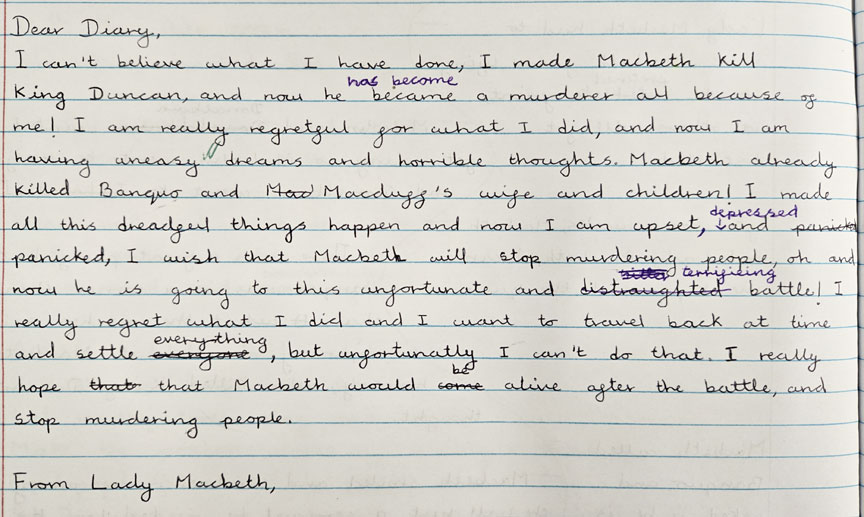 Dear Diary,
I can't believe what I have done, I made Macbeth kill
has become
King Duncan, and now he became a murderer all because of
me! I am really regretful for what I did, and now I am
having uneasy dreams and horrible thoughts. Macbeth already
killed Banquo and Mad Macduff's wife and children! I made
depressed
all this dreadful things happen and now I am upset, and panicked
panicked, I wish that Macbeth will stop murdering people, oh and
terrifising
now he is going to this unfortunate and distraughted battle! I
really regret what I did and I want to travel back at time
everything
and settle everyone, but unfortunatly I can't do that. I really
be
hope that that Macbeth would come alive after the battle, and
stop murdering people.
From Lady Macbeth,